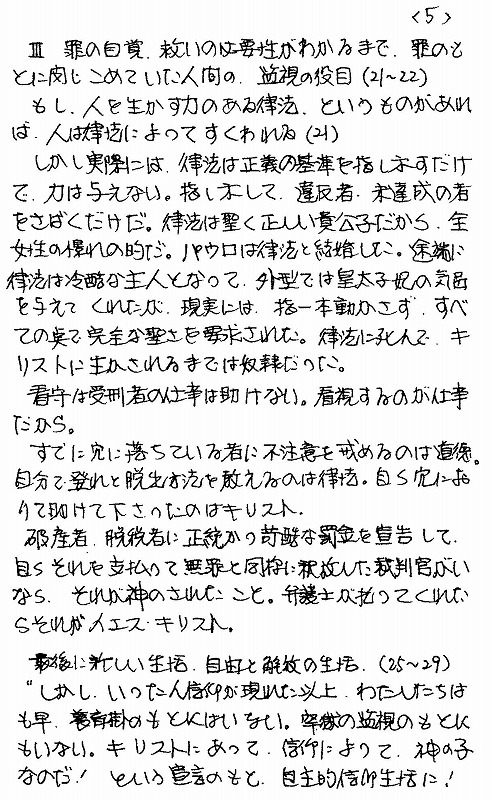 <5>
Ⅲ 罪の自覚、救いの必要性がわかるまで、罪のも
とに閉じこめていた人間の、監視の役目(21~22)
もし、人を生かす力のある律法、というものがあれ
ば、人は律法によってすくわれる(21)
しかし実際には、律法は正義の基準を指し示すだけ
で、力は与えない。指し示して、違反者・未達成の者
をさばくだけだ。律法は聖く正しい貴公子だから、全
女性の憧れの的だ。パウロは律法と結婚した。途端に
律法は冷酷な主人となって、外型では皇太子妃の気品
を与えてくれたが、現実には、指一本動かさず、すべ
ての点で完全な聖さを要求された。律法に死んで、キ
リストに生かされるまでは奴隷だった。
看守は受刑者の仕事は助けない。看視するのが仕事
だから。
すでに穴に落ちている者に不注意を戒めるのは道徳。
自分で登れと脱出方法を教えるのは律法。自ら穴にお
りて助けて下さったのはキリスト。
破産者、脱税者に正統かつ苛酷な罰金を宣告して、
自らそれを支払って無罪と同時に釈放した裁判官がい
なら、それが神のされたこと。弁護士が払ってくれた
らそれがイエス・キリスト。
最後に新しい生活、自由と解放の生活、(25~29)
"しかし、いったん信仰が現れた以上、わたしたちは
も早、養育掛のもとにはいない。の監視のもとに
もいない。キリストにあって、信仰によって、神の子
なのだ! という宣言のもと、自主的信仰生活に!